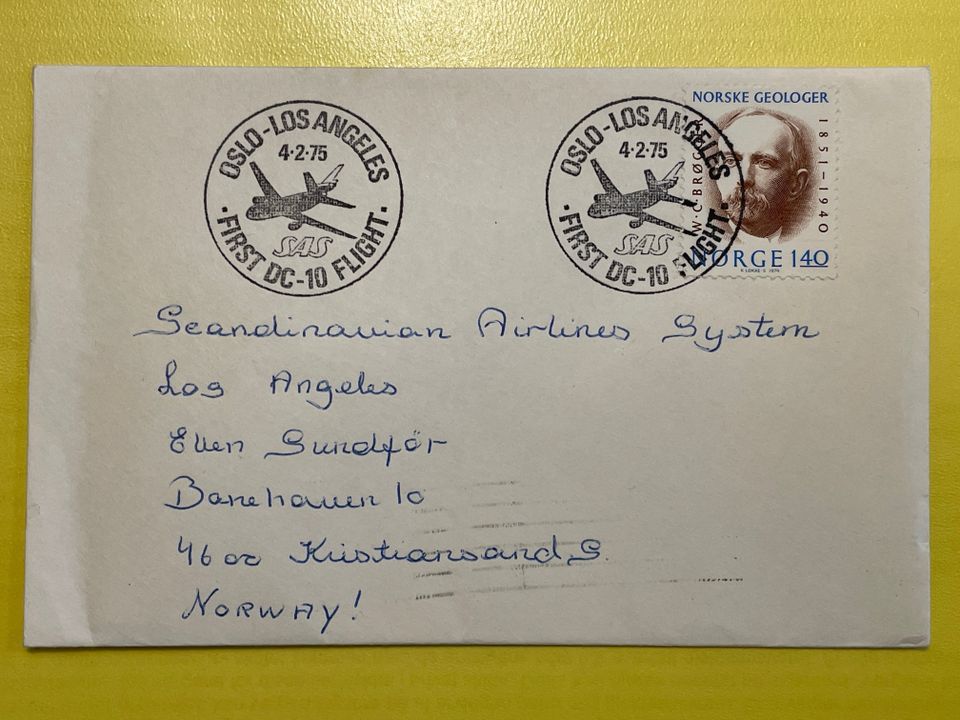 OSLO-LOS ANGELES
4·2·75
SAS
· FIRST DC-10 FLIGHT ·
OSLO-LOS ANGELES
4·2·75
SAS
· FIRST DC-10 FLIGHT ·
NORSKE GEOLOGER
W·C·BRØGGER
1851–1940
NORGE 140
Scandinavian Airlines System
Los Angeles
Ellen Sundför
Banehaven 10
4600 Kristiansand S.
NORWAY!